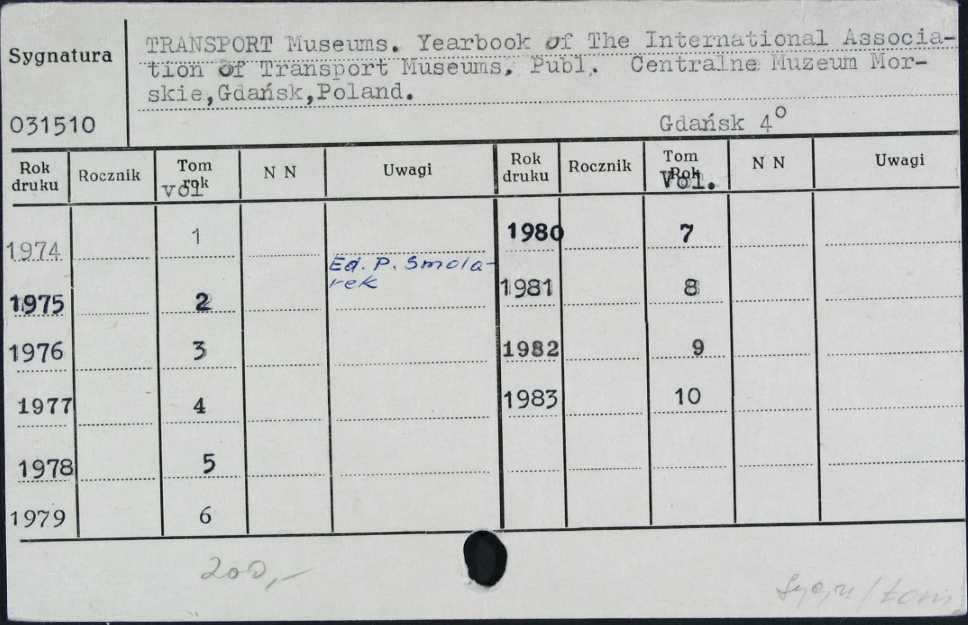 Sygnatura
031510
TRANSPORT Museums. Yearbook of The International Associa-
tion of Transport Museums. Publ. Centralne Muzeum Mor-
skie,Gdańsk,Poland.
Gdańsk 4°
Rok druku Rocznik Tom rok vol N N Uwagi Rok druku Rocznik Tom Rok Vol. N N Uwagi
1974 1 1980 7
Ed. P. Smola-
rek
1975 2 1981 8
1976 3 1982 9
1977 4 1983 10
1978 5
1979 6
200,-